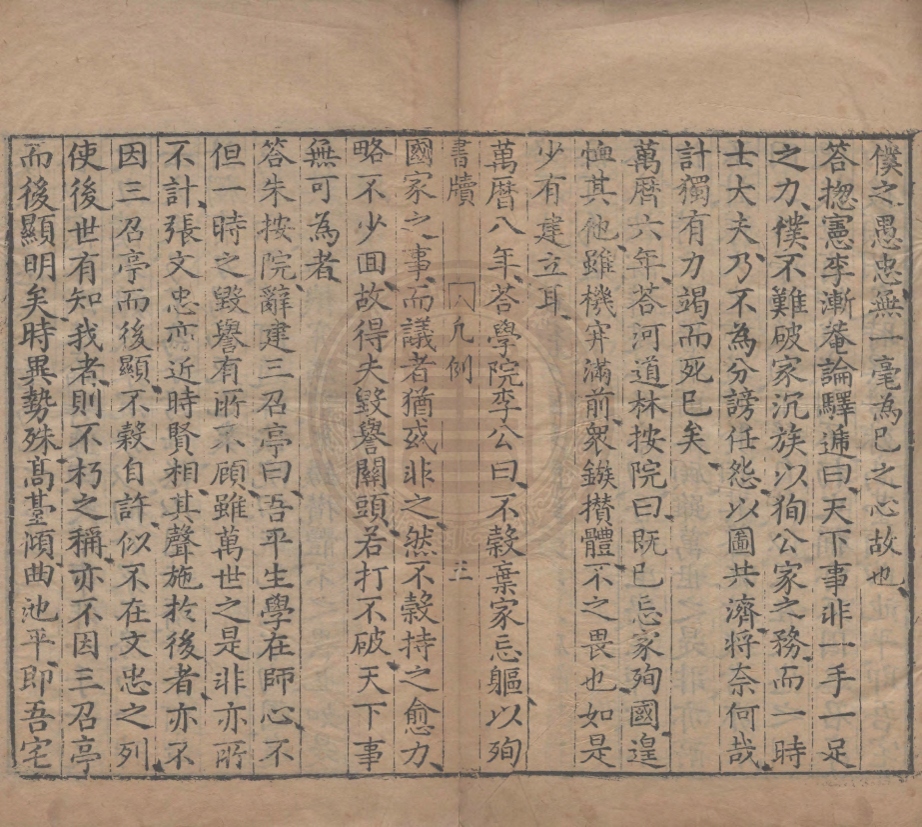 僕之愚忠無一毫為已之心故也
答揔憲李漸菴論驛遞曰天下事非一手一足
之力僕不難破家沉族以狥公家之務而一時
士大夫乃不為分謗任怨以圖共濟將奈何哉
計獨有力竭而死已矣
萬曆六年荅河道林按院曰既已忘家殉國遑
恤其他雖機穽滿前衆鏃攅體不之畏也如是
少有建立耳
萬曆八年荅學院李公曰不穀棄家忘軀以殉
書牘 凡例 三
國家之事而議者猶或非之然不穀持之愈力
略不少囬故得夫毀譽關頭若打不破天下事
無可為者
答朱按院辭建三召亭曰吾平生學在師心不
但一時之毀譽有所不顧雖萬世之是非亦所
不計張文忠亦近時賢相其聲施於後者亦不
因三召亭而後顯不榖自許似不在文忠之列
使後世有知我者則不朽之稱亦不因三召亭
而後顯明矣時異勢殊髙臺傾曲池平即吾宅